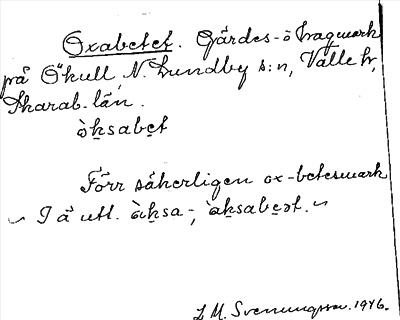 Oxabetet. Gärdes- o hagmark
på Ökull N. Lundby s:n, Valle hd,
Skarab. län.
òk̲sabe̲t
Förr säkerligen ox-betesmark
~ I ä utt. àk̲sa-, àk̲sabe̲ət. ~
L M. Svenungsson. 1946.